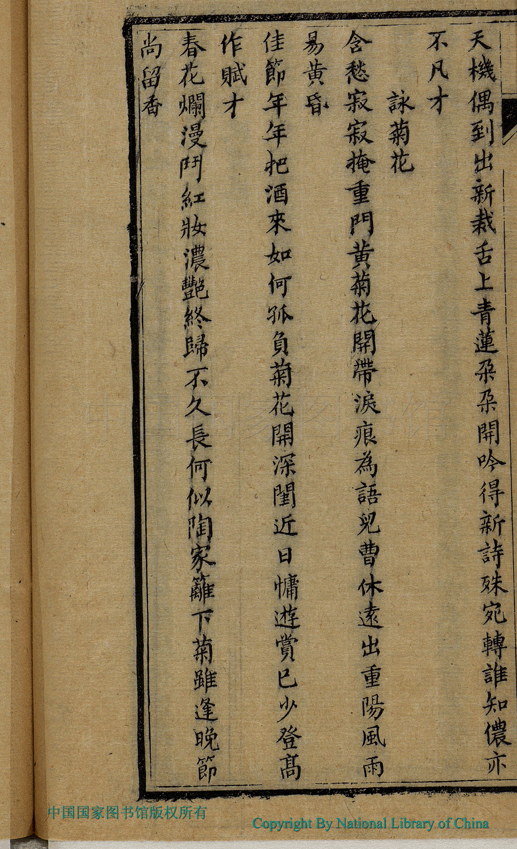 天機偶到出新裁舌上青蓮朶朶開吟得新詩殊宛轉誰知儂亦
不凡才
詠菊花
含愁寂寂掩重門黃菊花開帶淚痕為語兒曹休遠出重陽風雨
易黃昏
佳節年年把酒來如何孤負菊花開深閨近日慵遊賞已少登高
作賦才
春花爛漫鬥紅妝濃艷終歸不久長何似陶家籬下菊雖逢晚節
尚留香
中国国家图书馆版权所有
Copyright By National Library of China